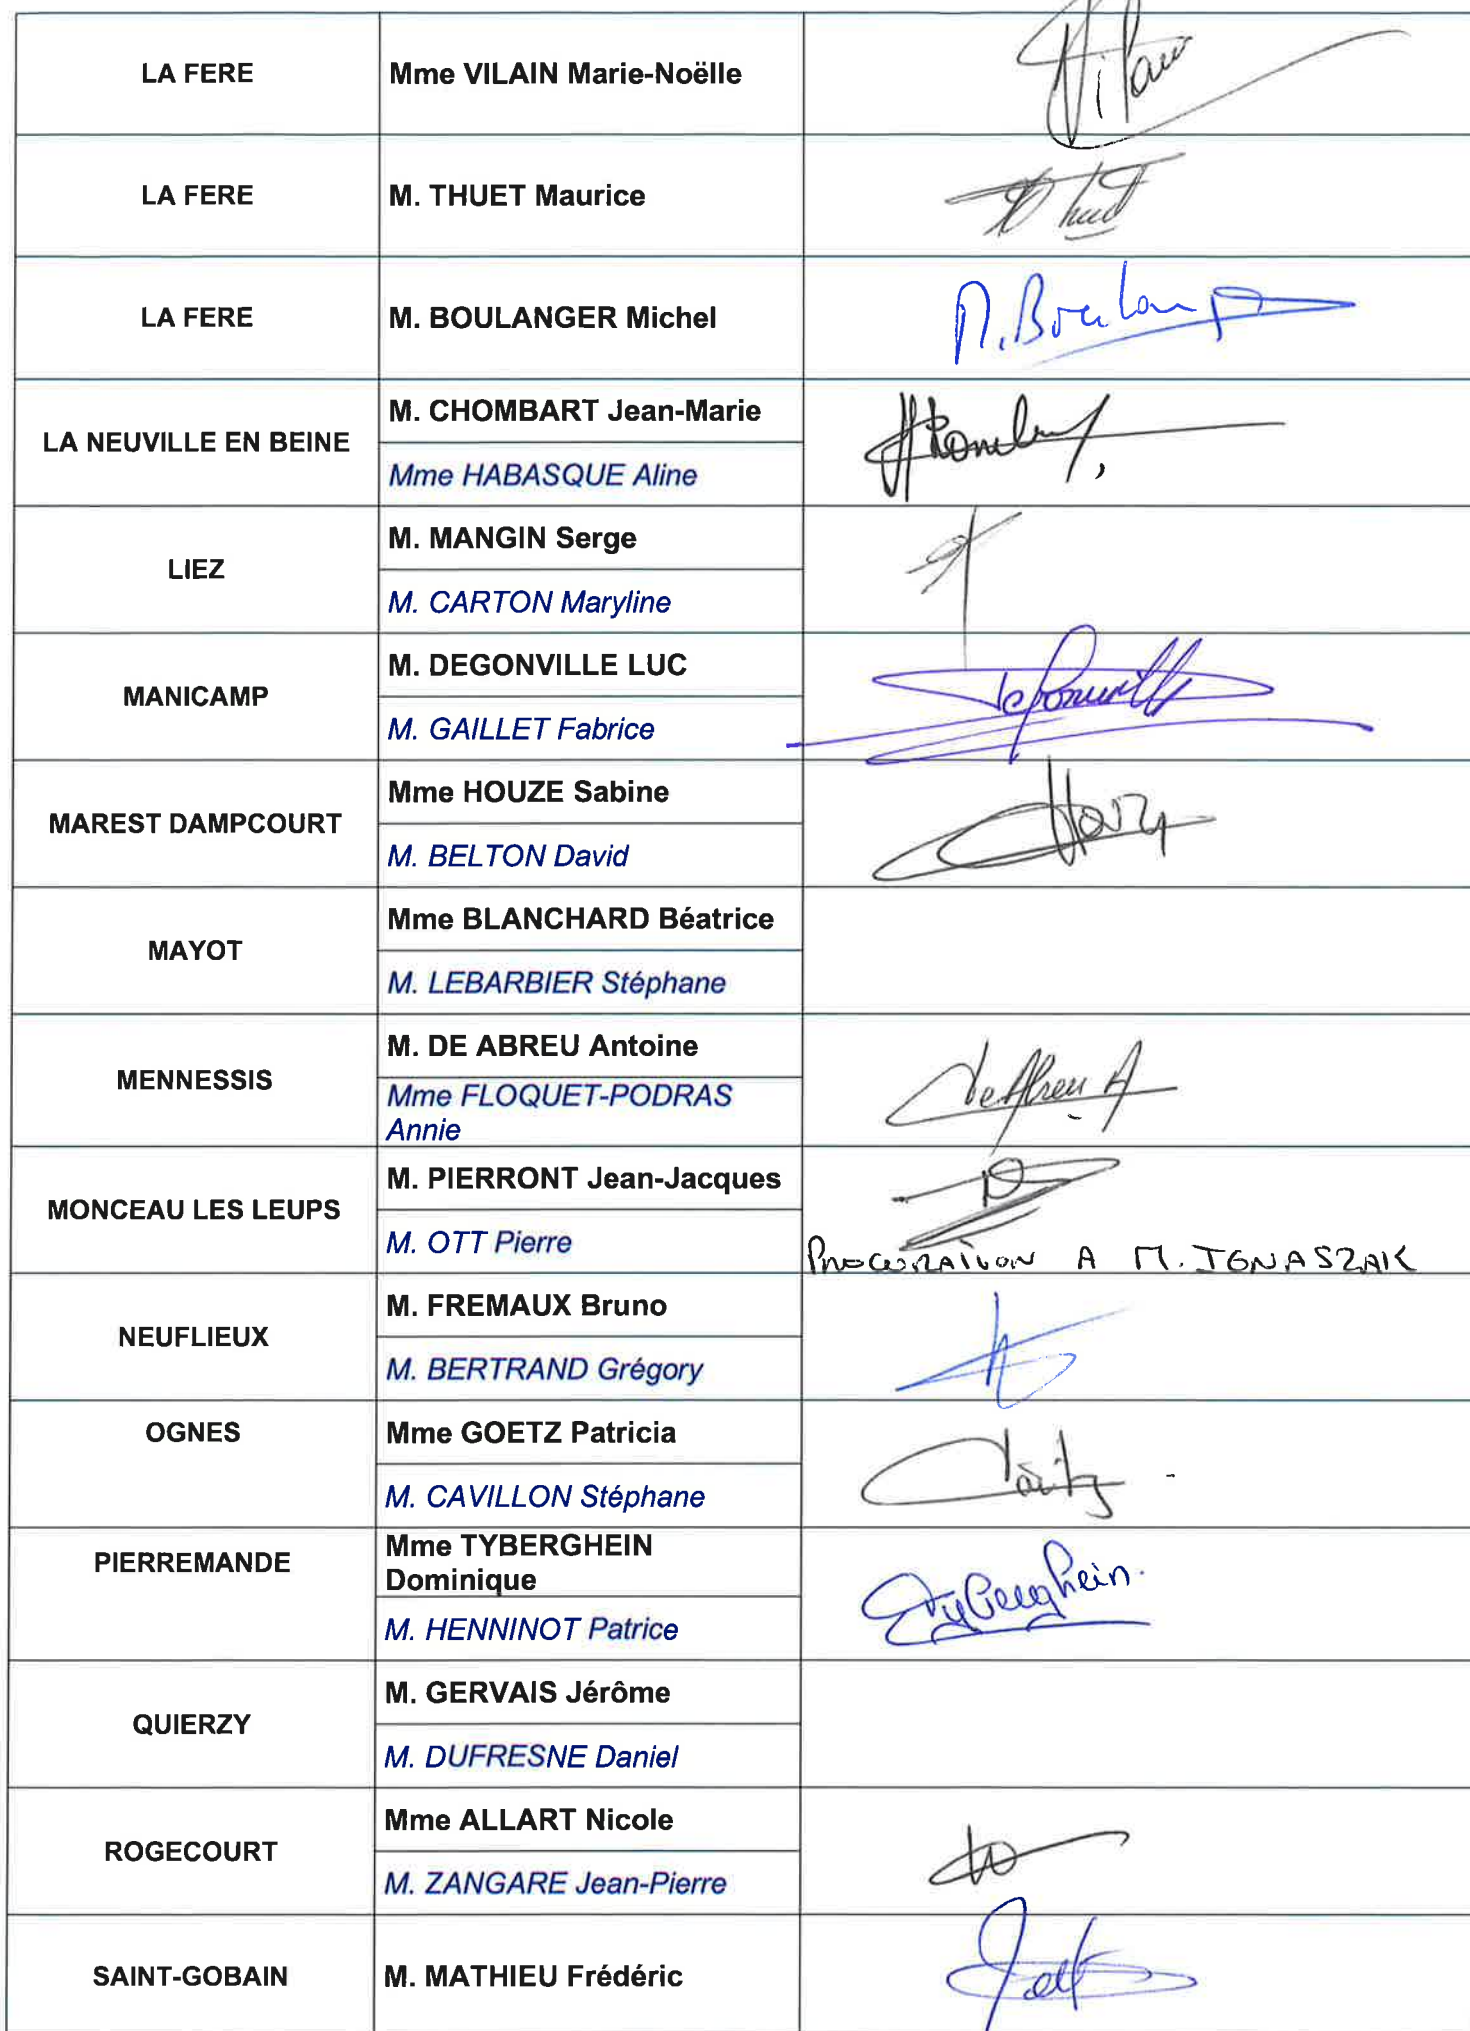 LA FERE
Mme VILAIN Marie-Noëlle
Vilain
LA FERE
M. THUET Maurice
Thuet
LA FERE
M. BOULANGER Michel
M. Boulang
LA NEUVILLE EN BEINE
M. CHOMBART Jean-Marie
Mme HABASQUE Aline
LIEZ
M. MANGIN Serge
M. CARTON Maryline
MANICAMP
M. DEGONVILLE LUC
M. GAILLET Fabrice
MAREST DAMPCOURT
Mme HOUZE Sabine
M. BELTON David
MAYOT
Mme BLANCHARD Béatrice
M. LEBARBIER Stéphane
MENNESSIS
M. DE ABREU Antoine
Mme FLOQUET-PODRAS
Annie
De Abreu A
MONCEAU LES LEUPS
M. PIERRONT Jean-Jacques
M. OTT Pierre
PROCURATION A M. IGNASZAK
NEUFLIEUX
M. FREMAUX Bruno
M. BERTRAND Grégory
OGNES
Mme GOETZ Patricia
M. CAVILLON Stéphane
PIERREMANDE
Mme TYBERGHEIN
Dominique
M. HENNINOT Patrice
Tyberghein.
QUIERZY
M. GERVAIS Jérôme
M. DUFRESNE Daniel
ROGECOURT
Mme ALLART Nicole
M. ZANGARE Jean-Pierre
SAINT-GOBAIN
M. MATHIEU Frédéric